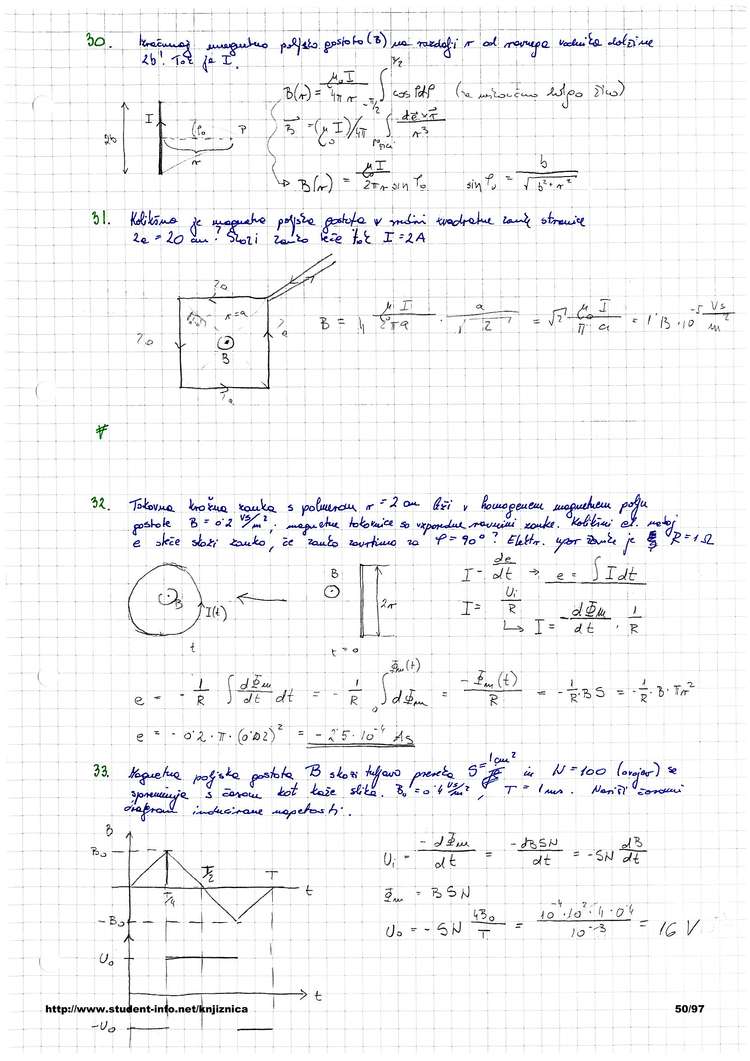 30. Izračunaj magnetno poljsko gostoto (B) na razdalji r od ravnega vodnika dolžine
2b! Tok je I.
B(r) = μ₀I/4πr ∫_{-π/2}^{π/2} cosφdφ (za neskončno dolgo žico)
B⃗ = (μ₀I)/4π ∫ dl⃗×r⃗/r³
B(r) = μ₀I/2πr sinφ₀ sinφ₀ = b/√(b²+r²)
2b I φ₀ P r
31. Kolikšna je magnetna poljska gostota v sredini kvadratne zanke stranice
2a = 20 cm? Skozi zanko teče tok I = 2A
2a
2a r=a B 2a
2a
B = 4 μ₀I/2πa · a/√2 = √2 μ₀I/π a = 1'13·10⁻⁵ Vs/m²
32. Tokovna krožna zanka s polmerom r = 2 cm leži v homogenem magnetnem polju
gostote B = 0'2 Vs/m², magnetne tokovnice so vzporedne ravnini zanke. Kolikšni el. naboj
e steče skozi zanko, če zanko zavrtimo za φ = 90°? Elektr. upor zanke je R = 1Ω
B I(t) t
B 2r t = 0
I = de/dt → e = ∫I dt
I = Ui/R
↳ I = -dΦm/dt · 1/R
e = - 1/R ∫ dΦm/dt dt = - 1/R ∫₀^{Φm(t)} dΦm = -Φm(t)/R = - 1/R BS = - 1/R · B · πr²
e = - 0'2 · π · (0'02)² = - 2'5·10⁻⁴ As
33. Magnetna poljska gostota B skozi tuljavo preseka S = 1cm² in N = 100 (ovojev) se
spreminja s časom kot kaže slika. B₀ = 0'4 Vs/m², T = 1ms. Nariši časovni
diagram inducirane napetosti.
B
B₀ T/4 T/2 T t
-B₀
U₀
t
-U₀
Ui = -dΦm/dt = -dBSN/dt = -SN dB/dt
Φm = BSN
U₀ = - SN 4B₀/T = 10⁻⁴·10²·4·0'4/10⁻³ = 16 V
http://www.student-info.net/knjiznica 50/97